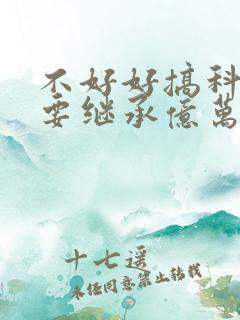 不好好搞科
要继承億萬
十七遥
未经同意禁止转载